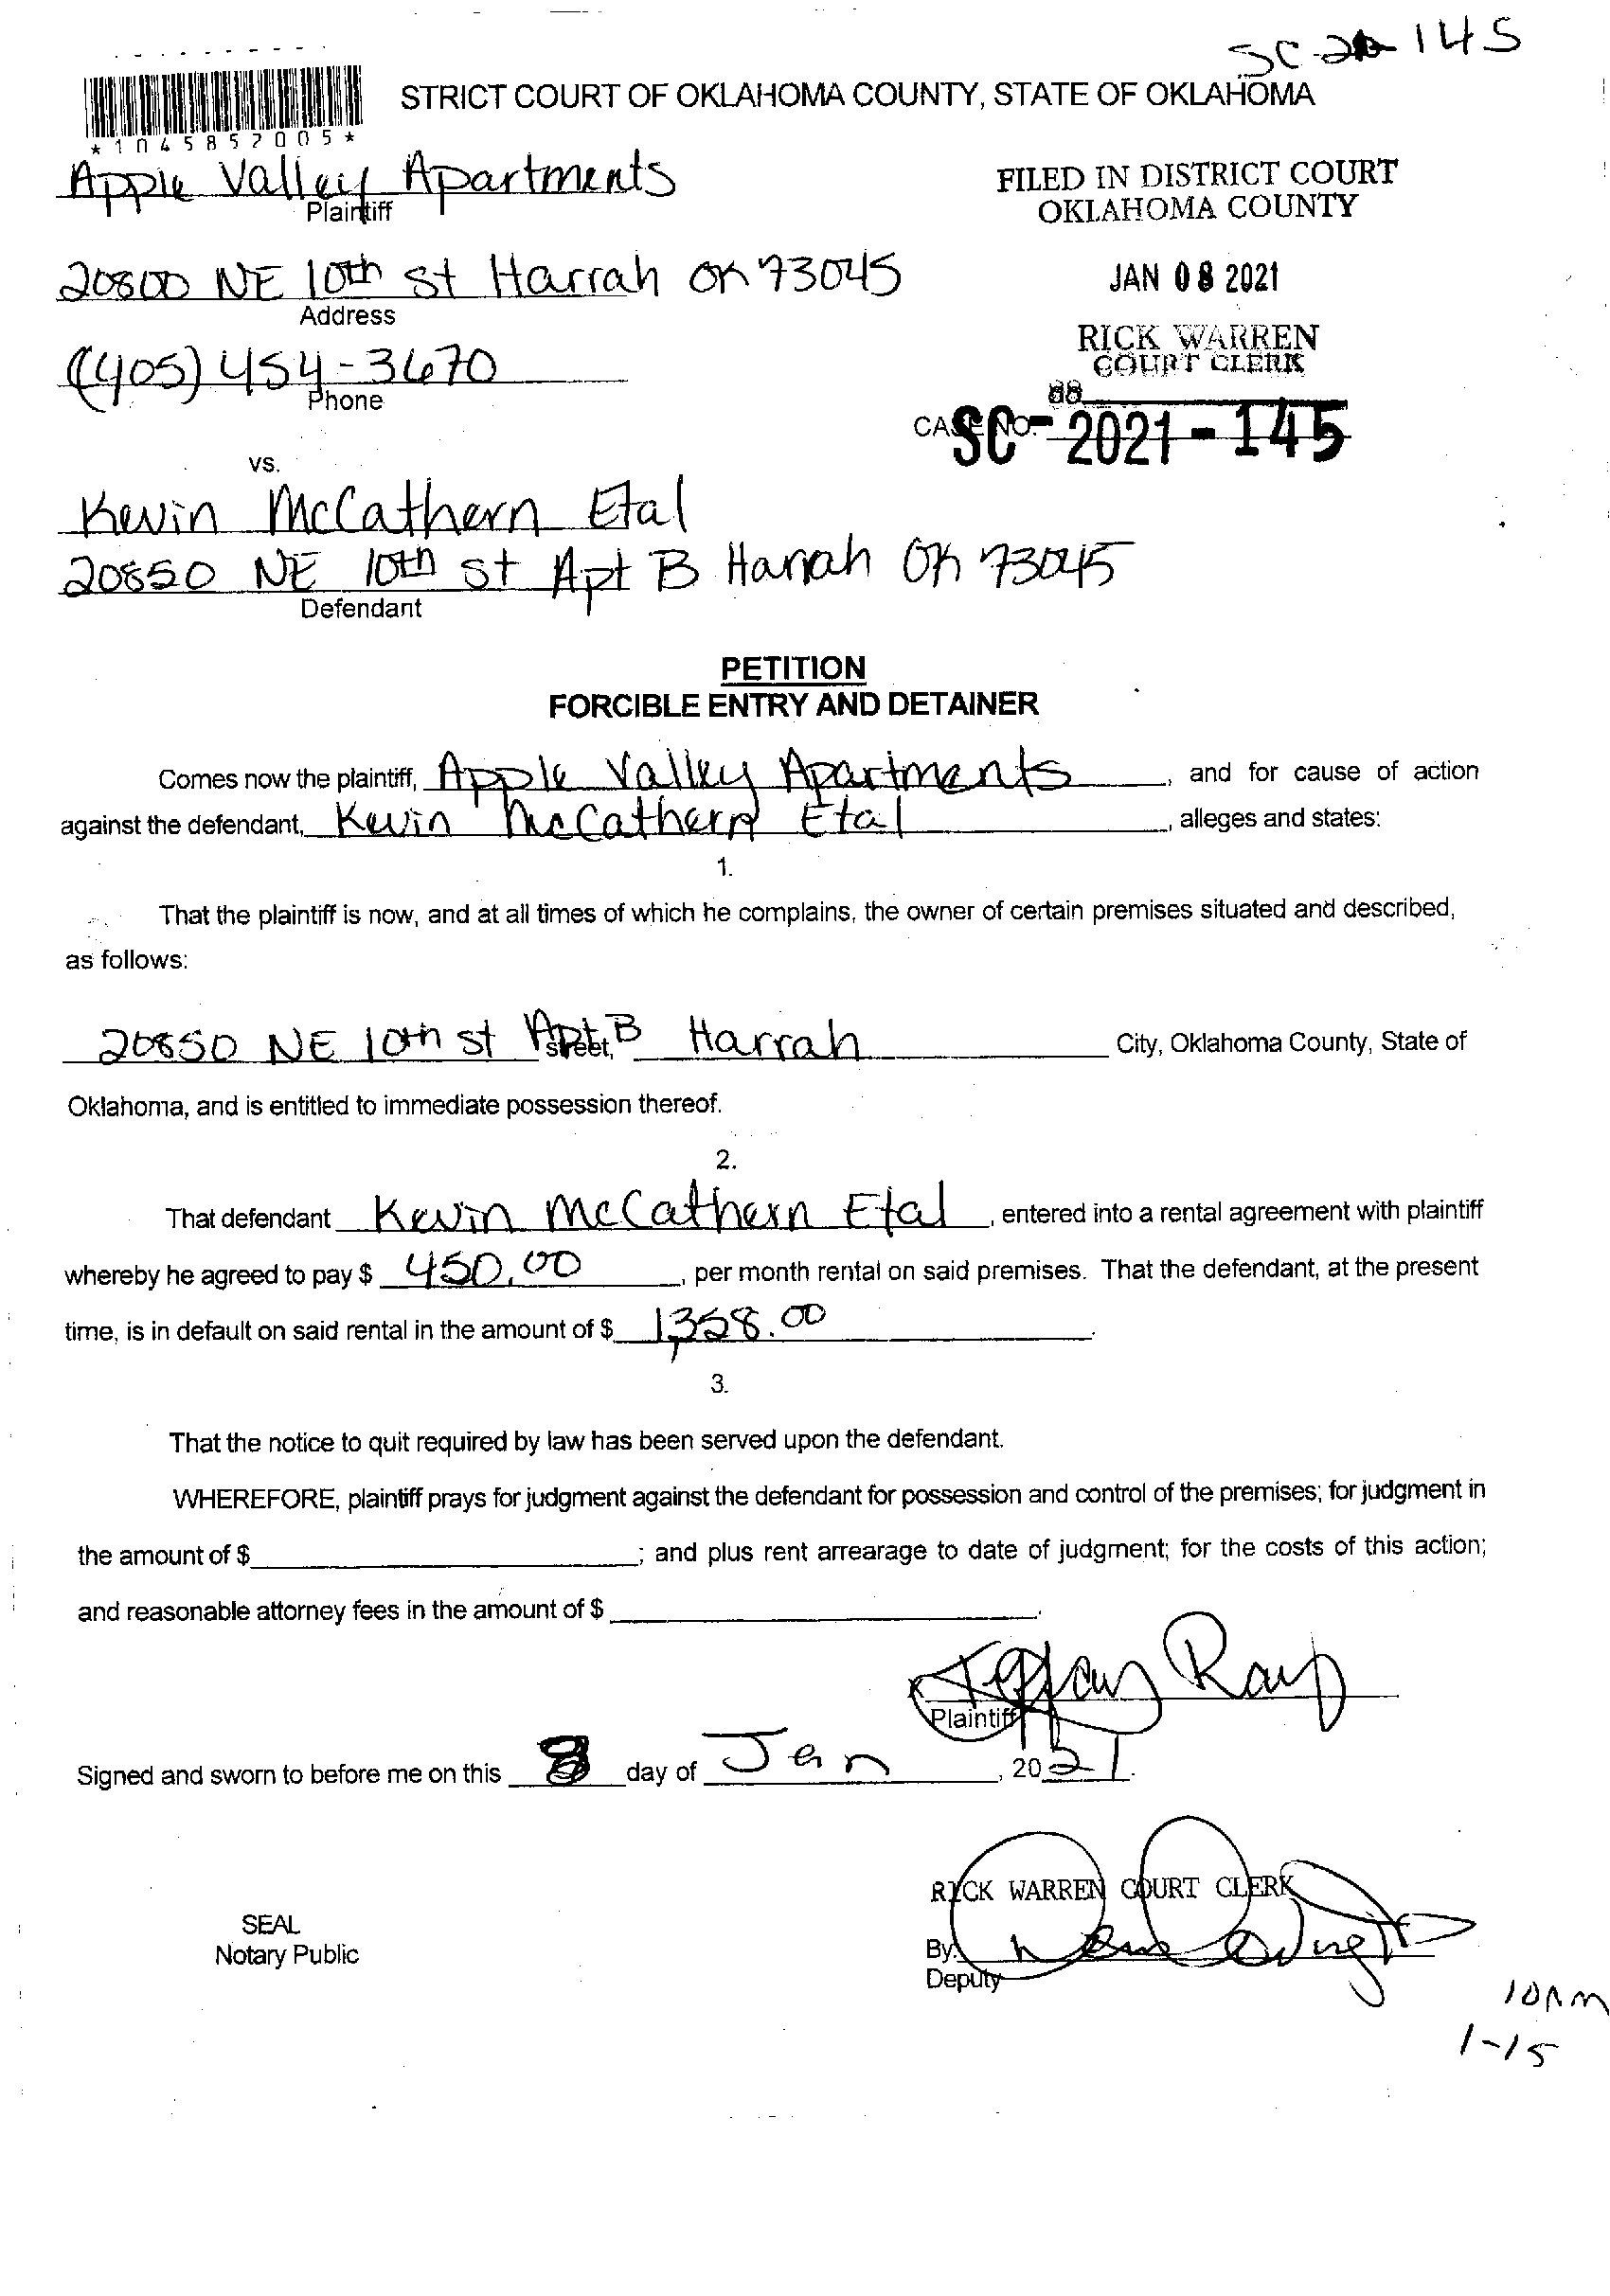 SC-21-145
STRICT COURT OF OKLAHOMA COUNTY, STATE OF OKLAHOMA
*1045852005*
Apple Valley Apartments
Plaintiff
FILED IN DISTRICT COURT
OKLAHOMA COUNTY
20800 NE 10th st Harrah OK 73045
Address
JAN 08 2021
RICK WARREN
COURT CLERK
(405) 454-3670
Phone
88
CASE NO. SC-2021-145
vs.
Kevin McCathern Etal
20850 NE 10th st Apt B Harrah OK 73045
Defendant
PETITION
FORCIBLE ENTRY AND DETAINER
Comes now the plaintiff, Apple Valley Apartments, and for cause of action
against the defendant, Kevin McCathern Etal, alleges and states:
1.
That the plaintiff is now, and at all times of which he complains, the owner of certain premises situated and described,
as follows:
20850 NE 10th st Apt B Harrah City, Oklahoma County, State of
street,
Oklahoma, and is entitled to immediate possession thereof.
2.
That defendant Kevin McCathern Etal, entered into a rental agreement with plaintiff
whereby he agreed to pay $ 450.00, per month rental on said premises. That the defendant, at the present
time, is in default on said rental in the amount of $ 1,358.00.
3.
That the notice to quit required by law has been served upon the defendant.
WHEREFORE, plaintiff prays for judgment against the defendant for possession and control of the premises; for judgment in
the amount of $ ; and plus rent arrearage to date of judgment; for the costs of this action;
and reasonable attorney fees in the amount of $ .
x Ray
Plaintiff
Signed and sworn to before me on this 8 day of Jan, 2021.
RICK WARREN COURT CLERK
SEAL
Notary Public
By:
Deputy
10AM
1-15